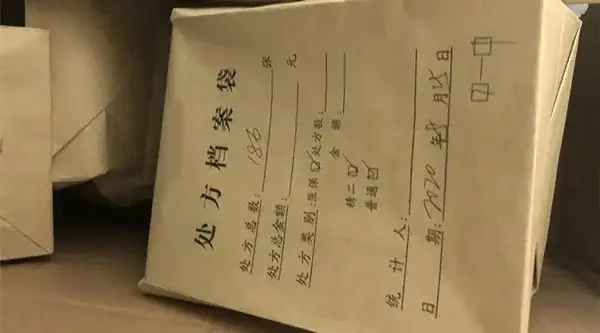 处方档案袋
处方总数:186张
处方总金额: 元
处方类别:医保☑处方数:
精二☑金额:
普通☑
统计人:
日期:2020年8月25日